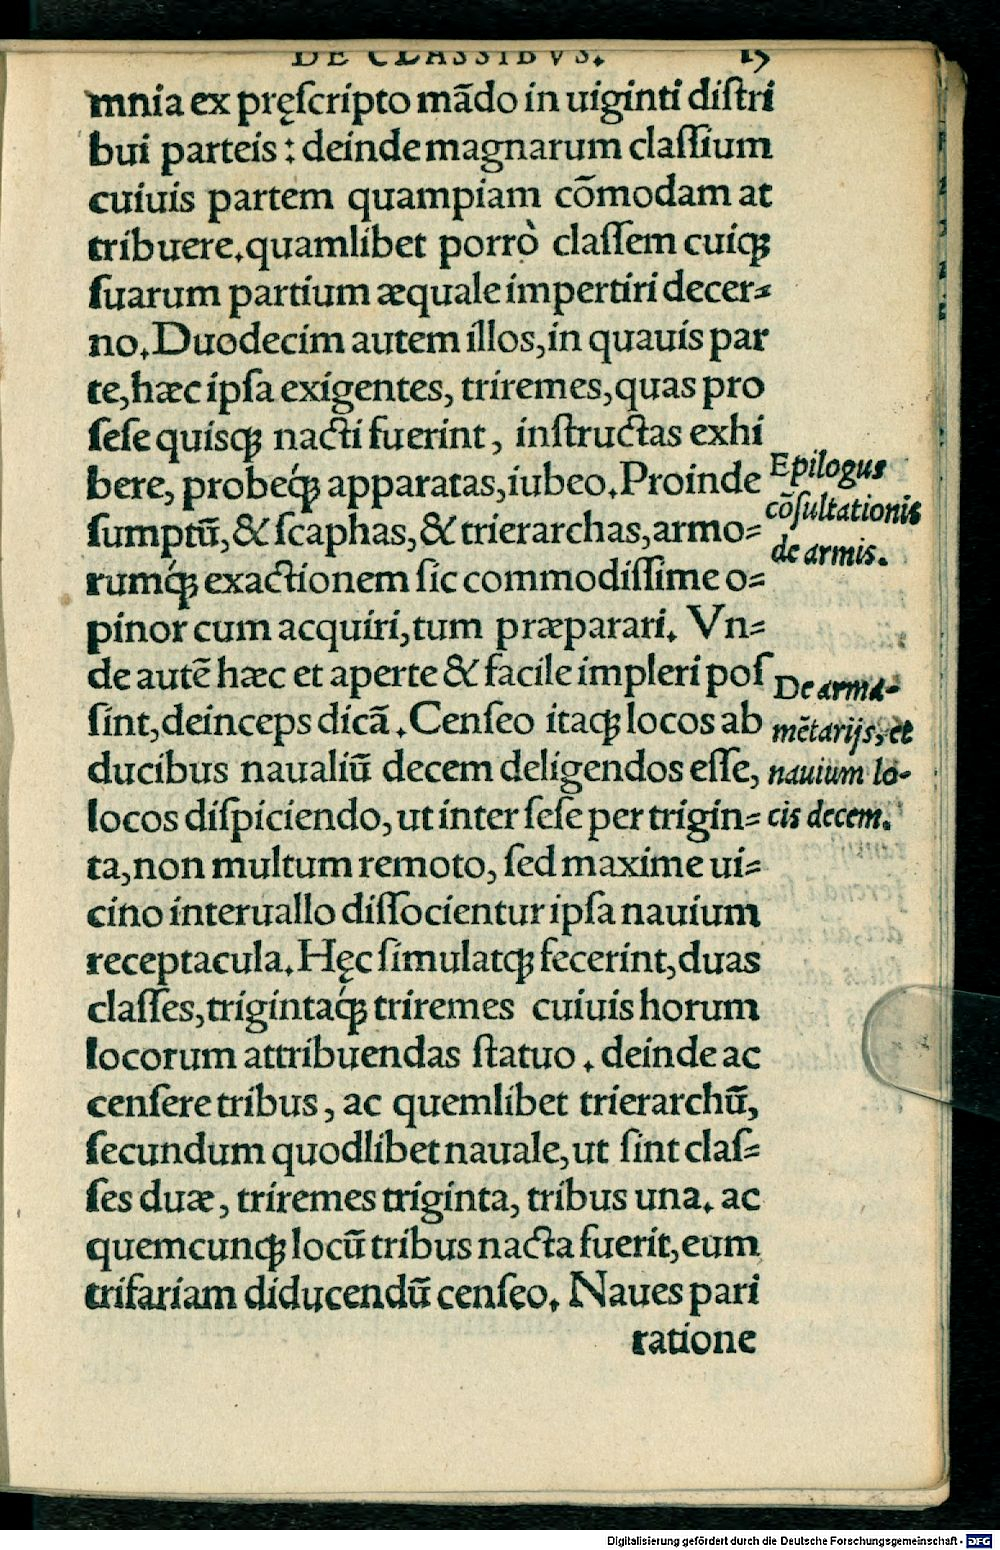 DE CLASSIBVS. 15
mnia ex pręscripto mādo in uiginti distri
bui parteis : deinde magnarum classium
cuiuis partem quampiam cōmodam at
tribuere. quamlibet porrò classem cuiqꝫ
suarum partium æquale impertiri decer⸗
no. Duodecim autem illos, in quauis par
te, hæc ipsa exigentes, triremes, quas pro
sese quisqꝫ nacti fuerint, instructas exhi
bere, probeqꝫ́ apparatas, iubeo. Proinde
sumptū, & scaphas, & trierarchas, armo⸗
rumqꝫ́ exactionem sic commodissime o⸗
pinor cum acquiri, tum præparari. Vn⸗
de autē hæc et aperte & facile impleri pos
sint, deinceps dicā. Censeo itaqꝫ locos ab
ducibus naualiū decem deligendos esse,
locos dispiciendo, ut inter sese per trigin⸗
ta, non multum remoto, sed maxime ui⸗
cino interuallo dissocientur ipsa nauium
receptacula. Hęc simulatqꝫ fecerint, duas
classes, trigintaqꝫ́ triremes cuiuis horum
locorum attribuendas statuo. deinde ac
censere tribus, ac quemlibet trierarchū,
secundum quodlibet nauale, ut sint clas⸗
ses duæ, triremes triginta, tribus una. ac
quemcunqꝫ locū tribus nacta fuerit, eum
trifariam diducendū censeo. Naues pari
ratione
Epilogus
cōsultationis
de armis.
De arma-
mētarijs, et
nauium lo-
cis decem.
Digitalisierung gefördert durch die Deutsche Forschungsgemeinschaft - DFG